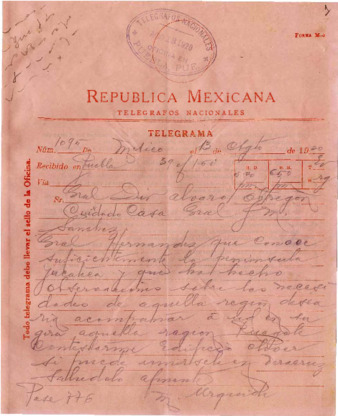 Forma M-1
TELEGRAFOS NACIONALES
REPUBLICA MEXICANA
TELEGRAFOS NACIONALES
TELEGRAMA
Núm. 1095 De Mexico el 13 de Agto de 1920
Recibido en Puebla
Vía
Sr. Gral Div Alvaro Obregon
Cuidado Casa Gral J. M.
Sanchez
Gral Hernandez que conoce
suficientemente la peninsula
yucateca y que ha hecho
observaciones sobre las necesi
dades de aquella region desea
ria acompañar a Ud en su
gira aquella region
Contestarme Edificio
si puede unirsele en Veracruz
Saludolo afmte
M Urquidi
Pase 776
Todo telegrama debe llevar el sello de la Oficina.